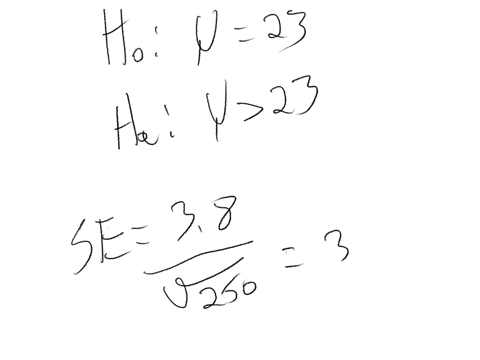 H₀: μ = 23
Hₐ: μ > 23
SE = 3.8 / √250 = 3